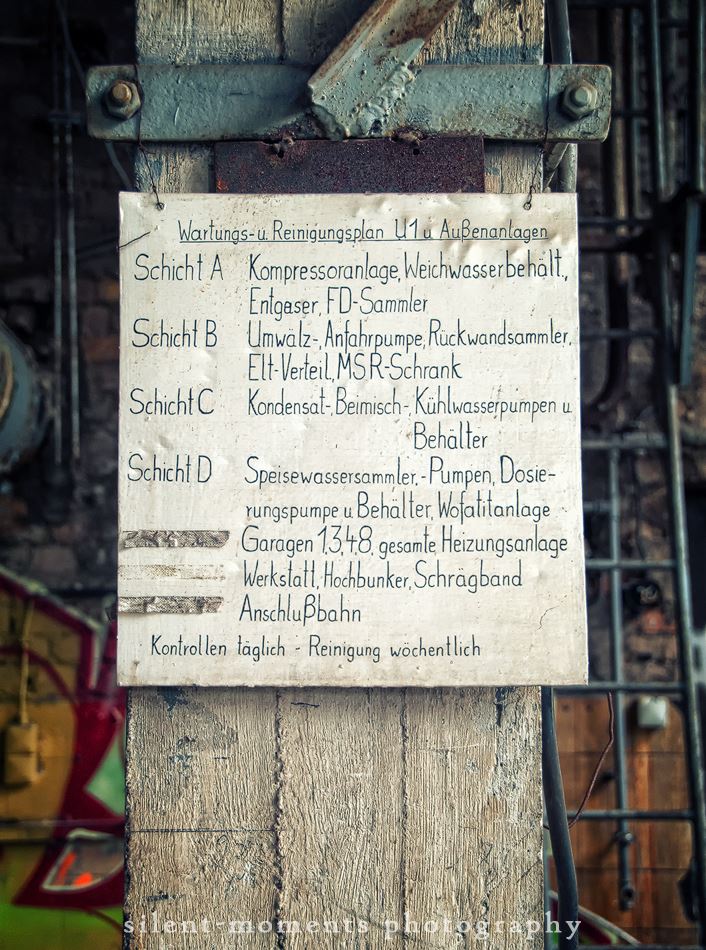 Wartungs- u. Reinigungsplan U1 u Außenanlagen
Schicht A Kompressoranlage, Weichwasserbehält.,
Entgaser, FD-Sammler
Schicht B Umwälz-, Anfahrpumpe, Rückwandsammler,
Elt-Verteil., MSR-Schrank
Schicht C Kondensat-, Beimisch-, Kühlwasserpumpen u
Behälter
Schicht D Speisewassersammler, -Pumpen, Dosie-
rungspumpe u Behälter, Wofatitanlage
Garagen 1,3,4,8, gesamte Heizungsanlage
Werkstatt, Hochbunker, Schrägband
Anschlußbahn
Kontrollen täglich - Reinigung wöchentlich
silent-moments photography